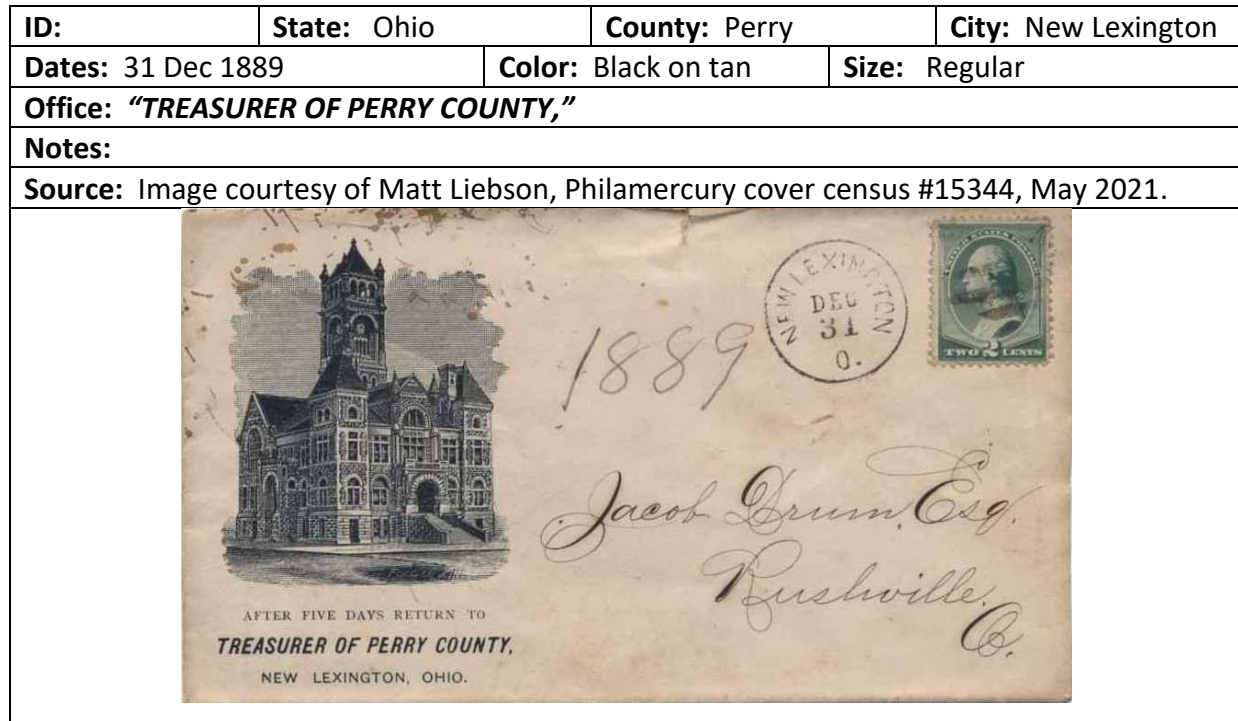 ID: State: Ohio County: Perry City: New Lexington
Dates: 31 Dec 1889 Color: Black on tan Size: Regular
Office: “TREASURER OF PERRY COUNTY,”
Notes:
Source: Image courtesy of Matt Liebson, Philamercury cover census #15344, May 2021.
NEW LEXINGTON
DEC
31
O.
UNITED STATES POSTAGE
TWO 2 CENTS
1889
Jacob Drum, Esq.
Rushville,
O.
AFTER FIVE DAYS RETURN TO
TREASURER OF PERRY COUNTY,
NEW LEXINGTON, OHIO.